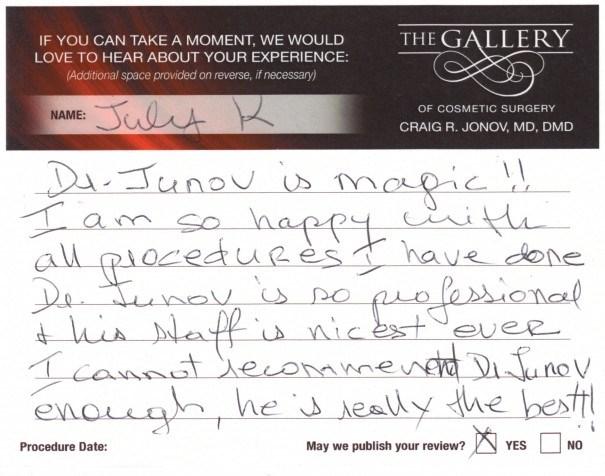 IF YOU CAN TAKE A MOMENT, WE WOULD
LOVE TO HEAR ABOUT YOUR EXPERIENCE:
(Additional space provided on reverse, if necessary)
NAME: July K
THE GALLERY
OF COSMETIC SURGERY
CRAIG R. JONOV, MD, DMD
Dr. Junov is magic!!
I am so happy with
all procedures I have done
Dr. Junov is so professional
+ his staff is nicest ever
I cannot recommend Dr. Junov
enough, he is really the best!!
Procedure Date:
May we publish your review? YES NO